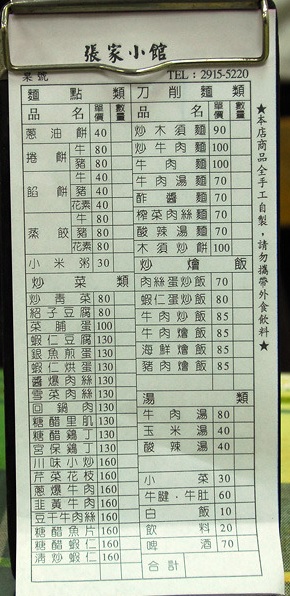 張家小館
桌號
TEL：2915-5220
麵點類
品名 單價 數量
蔥油餅 40
捲餅 牛 80
豬 80
餡餅 牛 40
豬 40
花素 40
蒸餃 牛 80
豬 80
花素 80
小米粥 30
炒菜類
炒青菜 80
紹子豆腐 80
菜脯蛋 100
蝦仁豆腐 130
銀魚煎蛋 130
蝦仁烘蛋 130
醬爆肉絲 130
雪菜肉絲 130
回鍋肉 130
糖醋里肌 130
糖醋雞丁 130
宮保雞丁 130
川味小炒 160
芹菜花枝 160
蔥爆牛肉 160
韭黃牛肉 160
豆干牛肉絲 160
糖醋魚片 160
糖醋蝦仁 160
清炒蝦仁 160
刀削麵類
品名 單價 數量
炒木須麵 90
炒牛肉麵 100
牛肉麵 100
牛肉湯麵 70
酢醬麵 70
榨菜肉絲麵 70
酸辣湯麵 70
木須炒餅 100
炒燴飯
肉絲蛋炒飯 70
蝦仁蛋炒飯 80
牛肉炒飯 85
牛肉燴飯 85
海鮮燴飯 85
豬肉燴飯 85
湯類
牛肉湯 80
玉米湯 40
酸辣湯 40
小菜 30
牛腱‧牛肚 60
白飯 10
飲料 20
啤酒 70
合計
★本店商品全手工自製，請勿攜帶外食飲料★